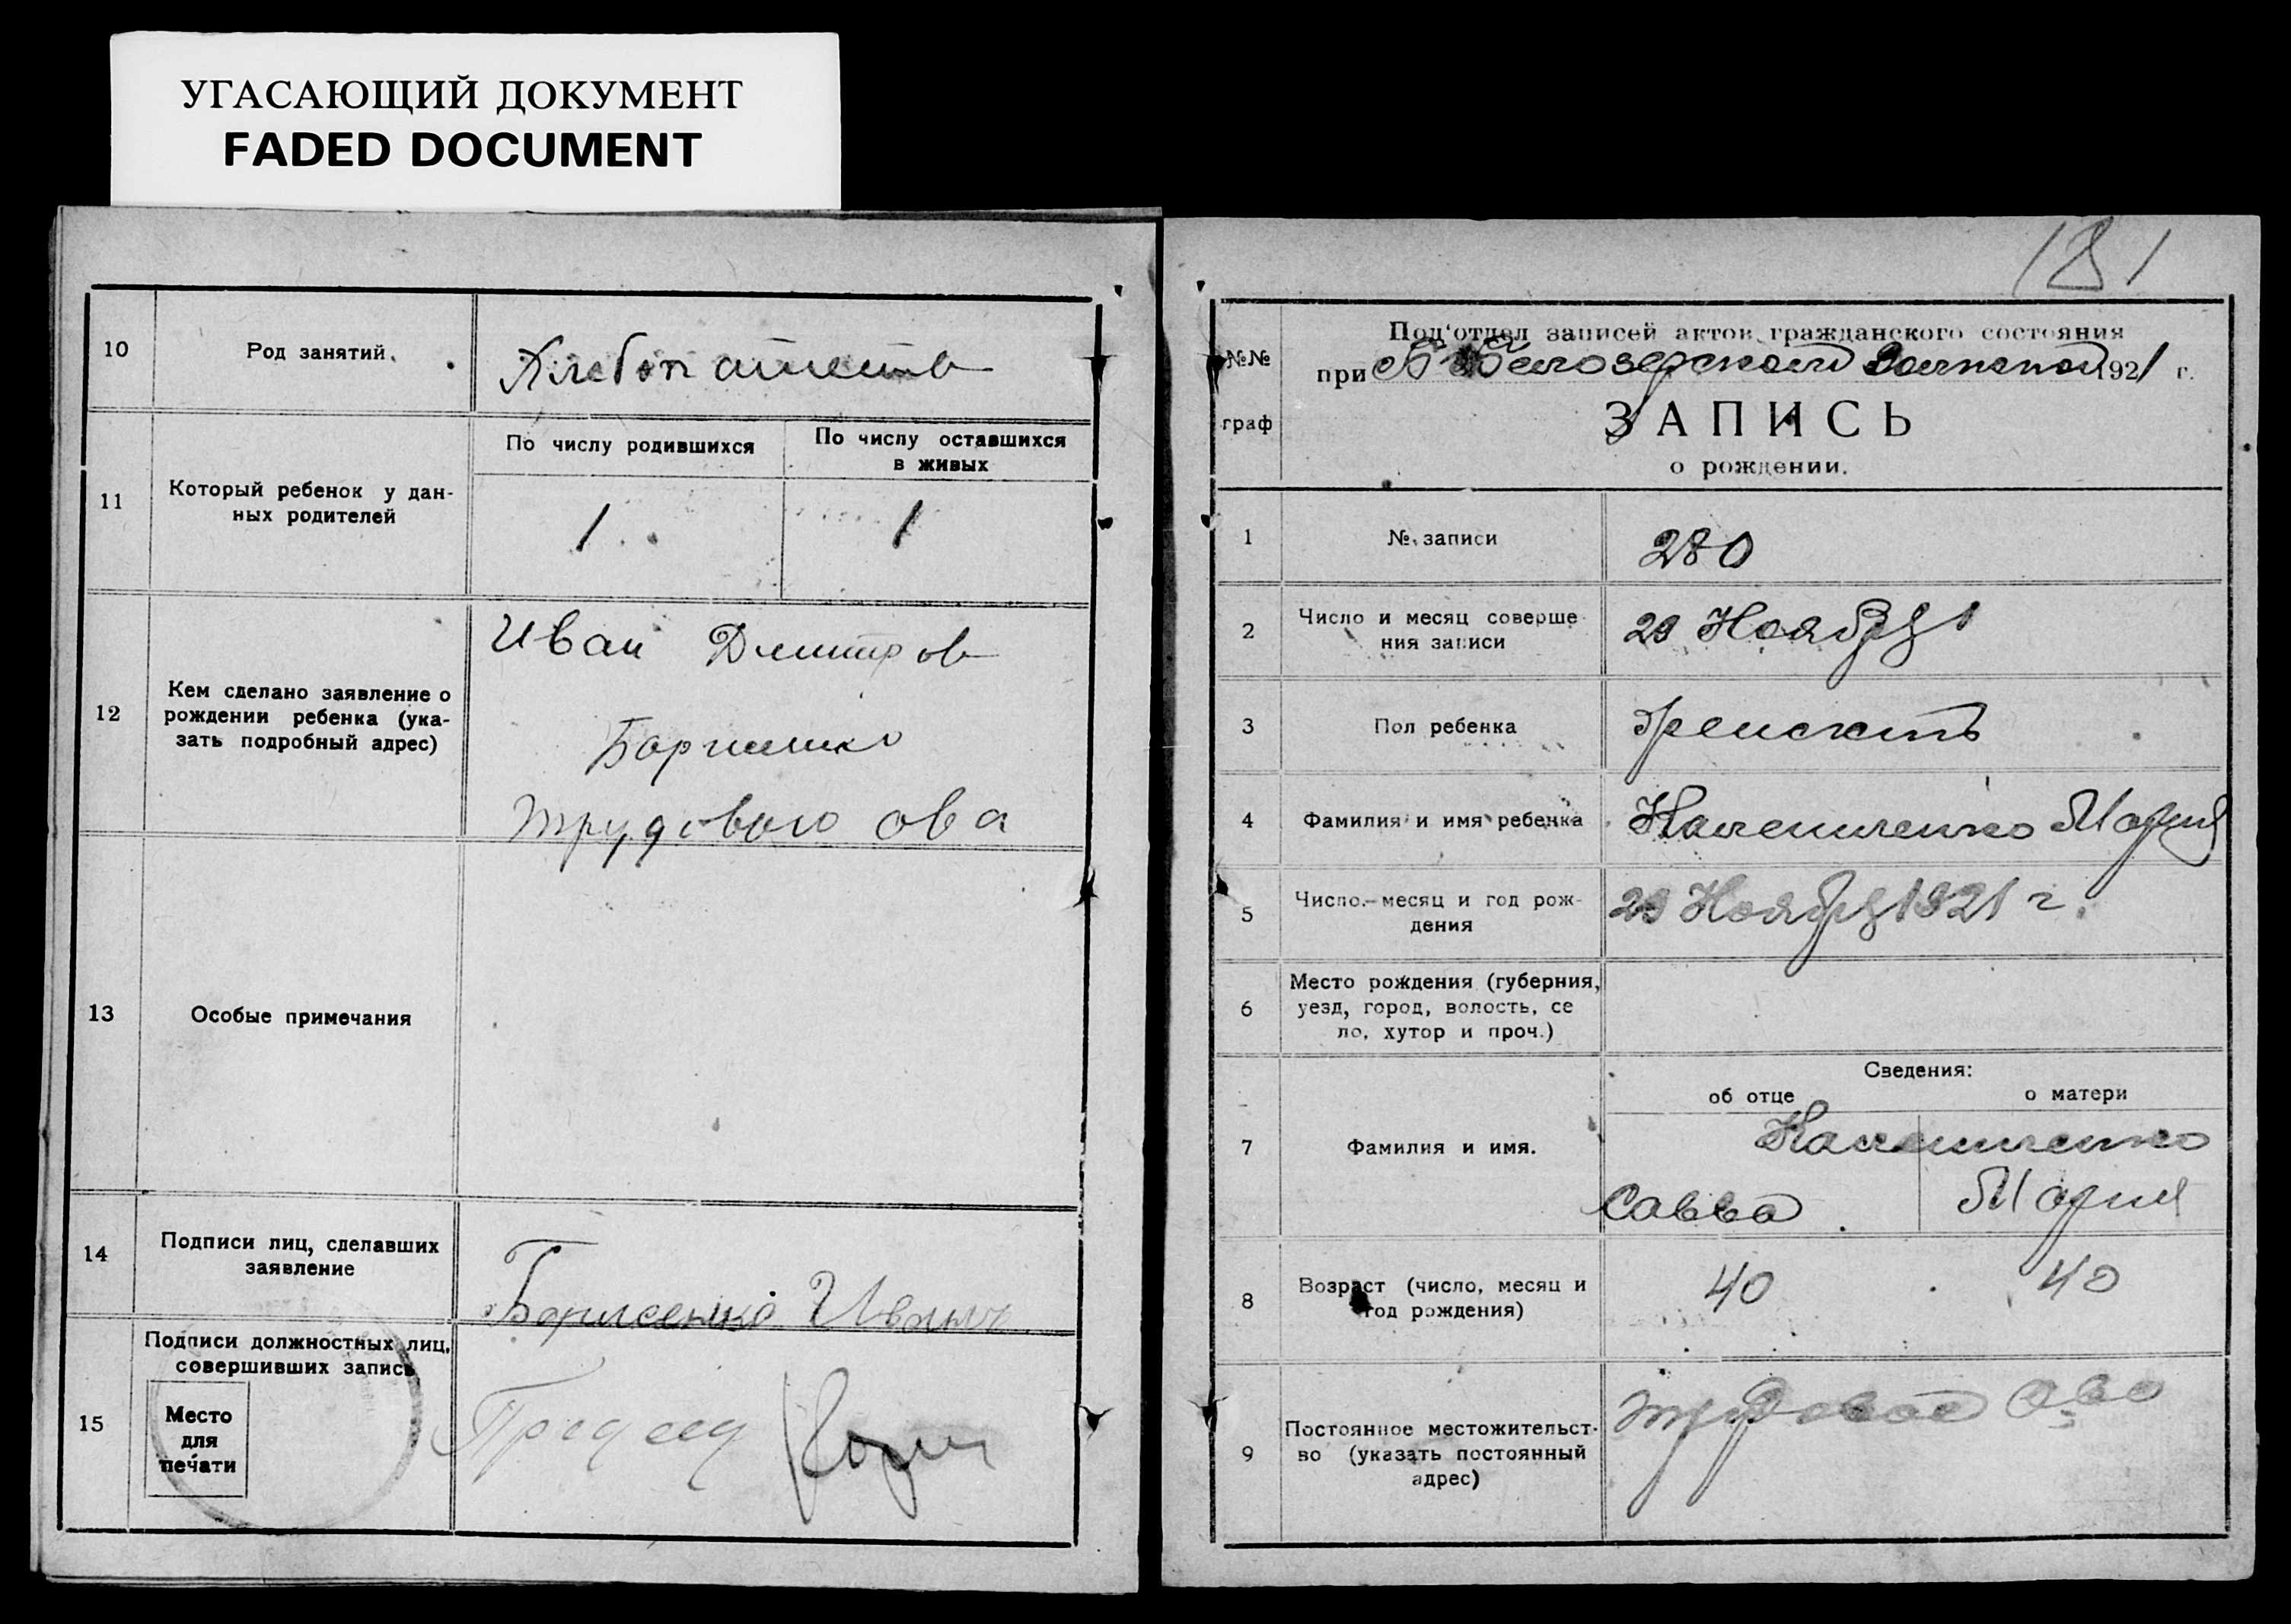 УГАСАЮЩИЙ ДОКУМЕНТ
FADED DOCUMENT
10
Род занятий
11
Который ребенок у дан-
ных родителей
По числу родившихся
1
По числу оставшихся
в живых
1
12
Кем сделано заявление о
рождении ребенка (ука-
зать подробный адрес)
Иван Дмитров
Борисенко
Трудового ова
13
Особые примечания
14
Подписи лиц, сделавших
заявление
Борисенко Иванъ
15
Подписи должностных лиц,
совершивших запись
Место
для
печати
181
№№
граф
Под'отдел записей актов гражданского состояния
при Белозерском 1921 г.
ЗАПИСЬ
о рождении.
1
№ записи
280
2
Число и месяц соверше
ния записи
29 Ноября
3
Пол ребенка
4
Фамилия и имя ребенка
Мария
5
Число.-месяц и год рож-
дения
29 Ноября 1921 г.
6
Место рождения (губерния,
уезд, город, волость, се
ло, хутор и проч.)
Сведения:
об отце
о матери
7
Фамилия и имя.
Савва
Мария
8
Возраст (число, месяц и
год рождения)
40
40
9
Постоянное местожительст-
во (указать постоянный
адрес)
Трудовое Ово